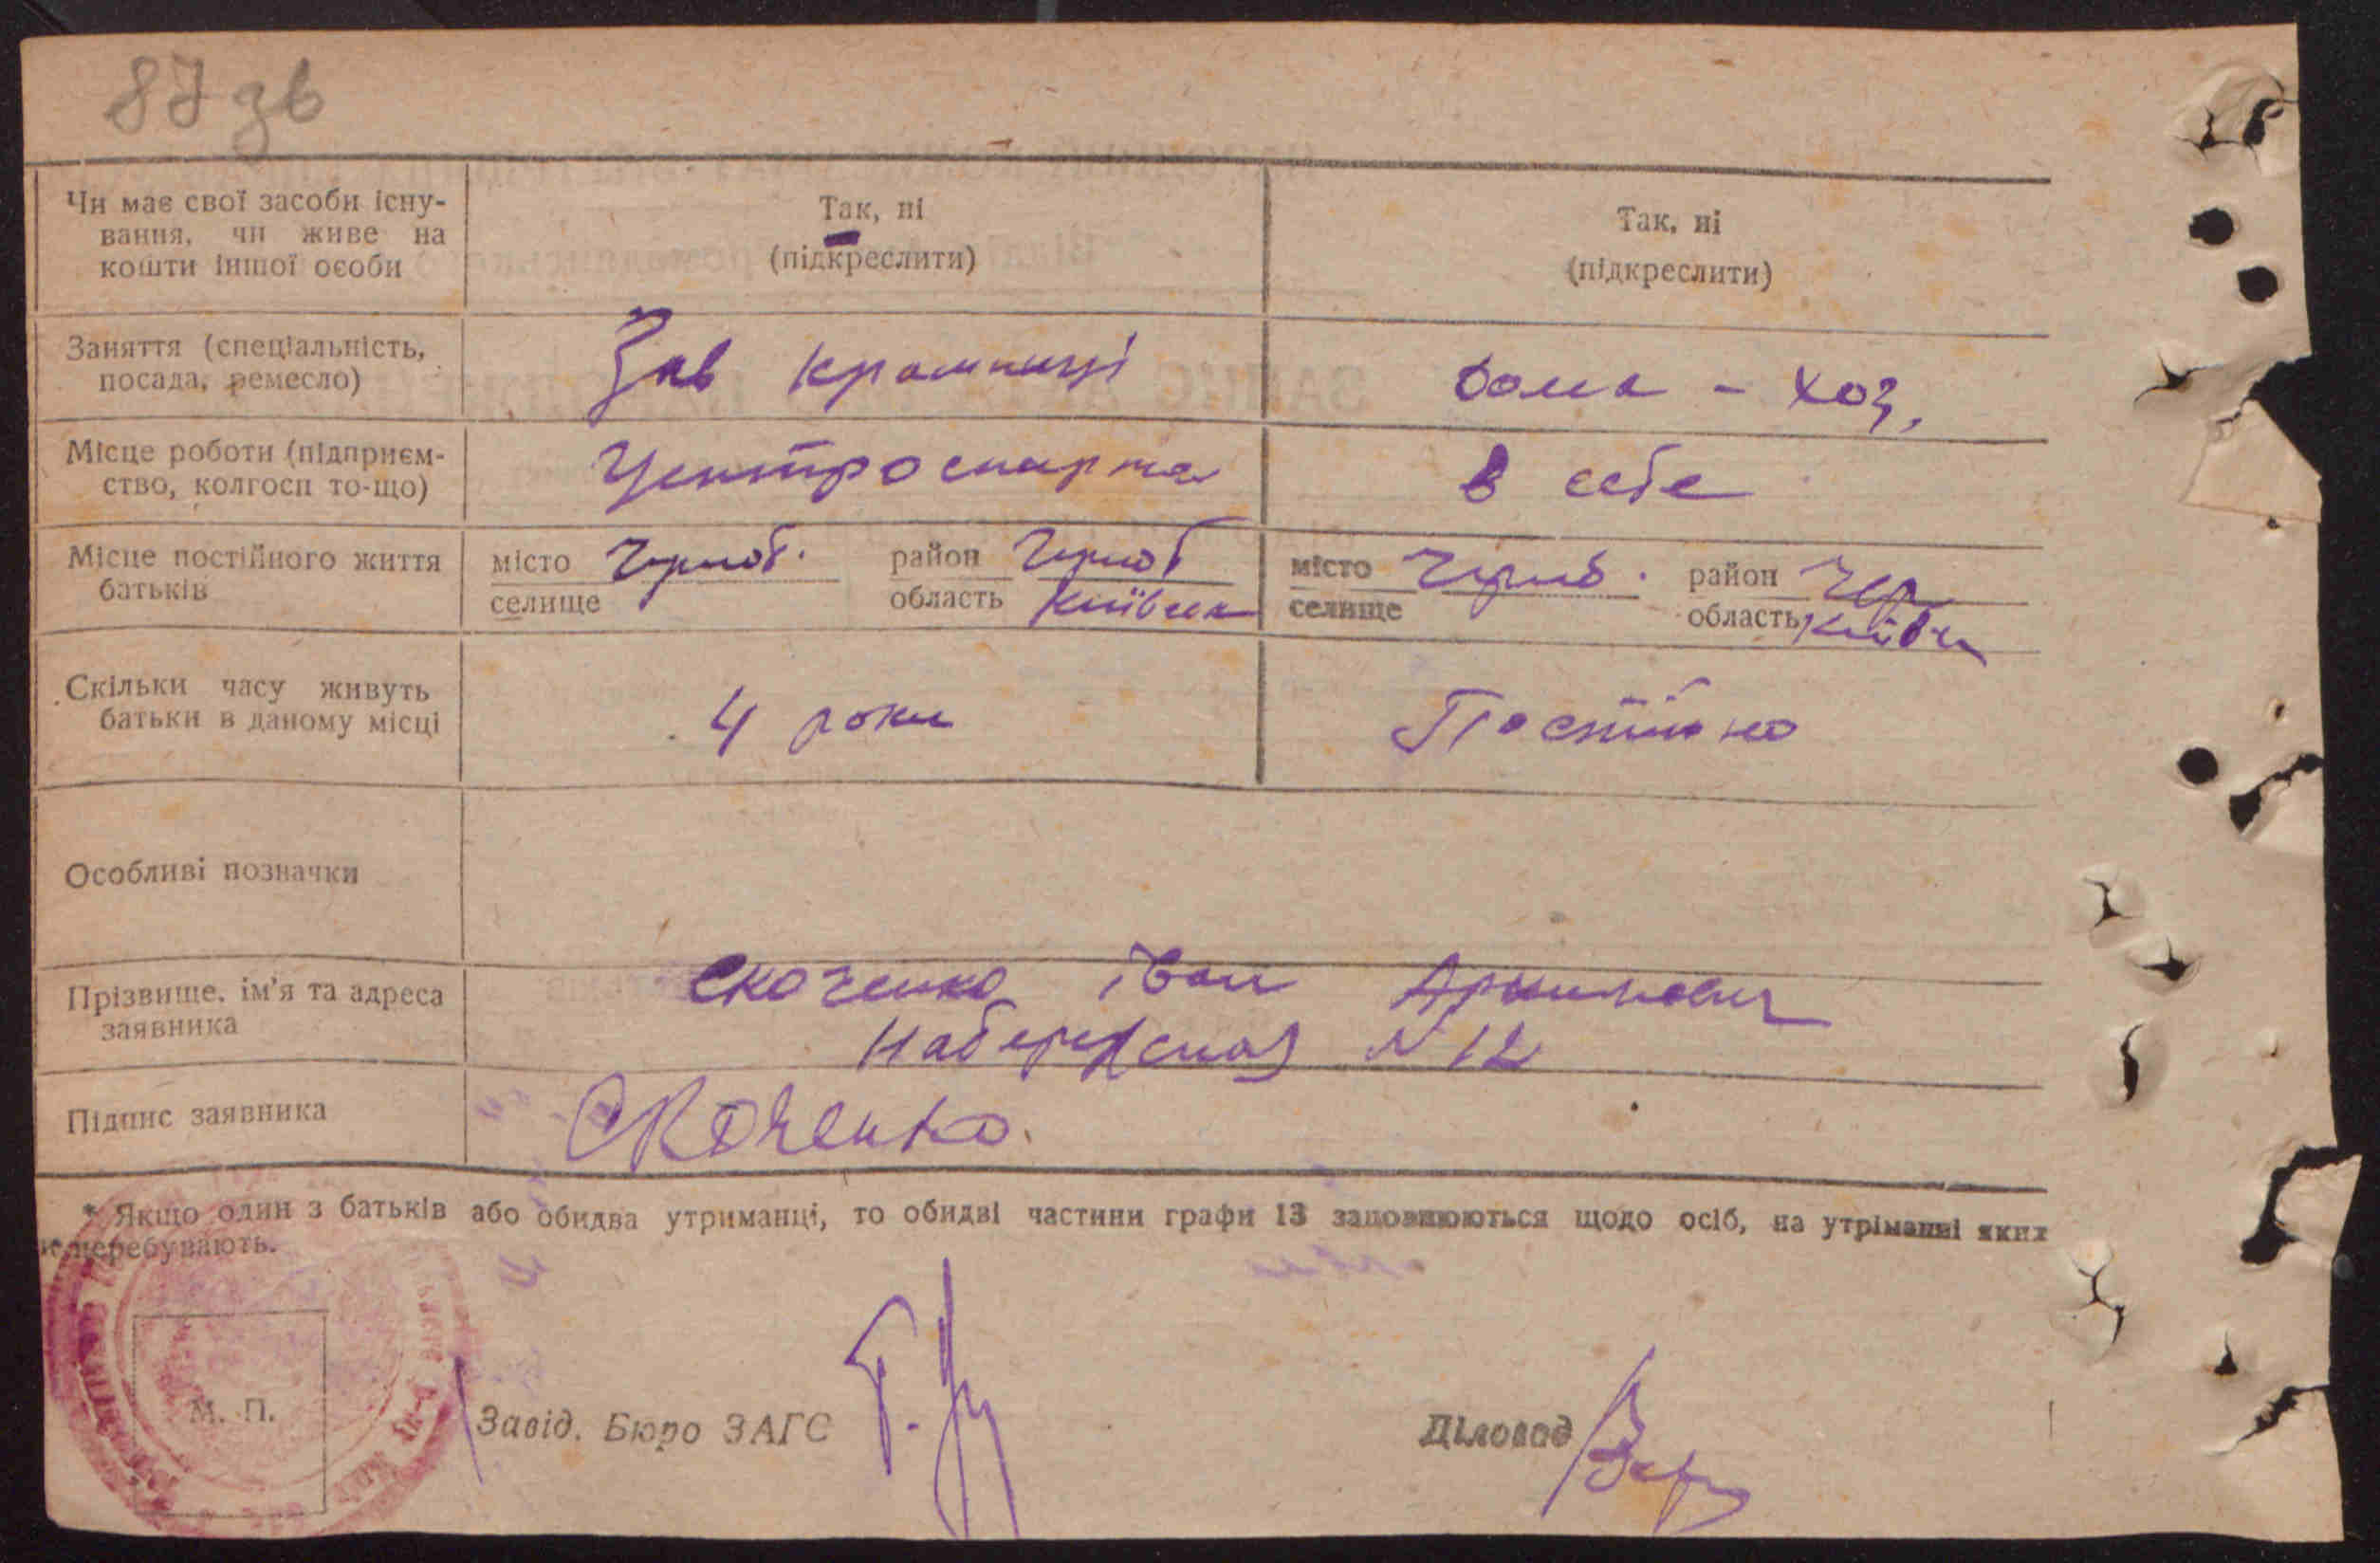 87 зв
Чи має свої засоби існу-
вання, чи живе на
кошти іншої особи
Так, ні
(підкреслити)
Так, ні
(підкреслити)
Заняття (спеціальність,
посада, ремесло)
Зав крамниці
дома - хоз,
Місце роботи (підприєм-
ство, колгосп то-що)
Центроспирта
в себе
Місце постійного життя
батьків
місто Чорноб.
селище
район Чорноб
область Київська
місто Чорноб.
селище
район Чор
область Київ
Скільки часу живуть
батьки в даному місці
4 роки
Постійно
Особливі позначки
Прізвище, ім'я та адреса
заявника
Скоченко Іван
Набережная N 12
Підпис заявника
Скоченко.
* Якщо один з батьків або обидва утриманці, то обидві частини графи 13 заповнюються щодо осіб, на утріманні яких
перебувають.
М. П.
Завід. Бюро ЗАГС
Діловод